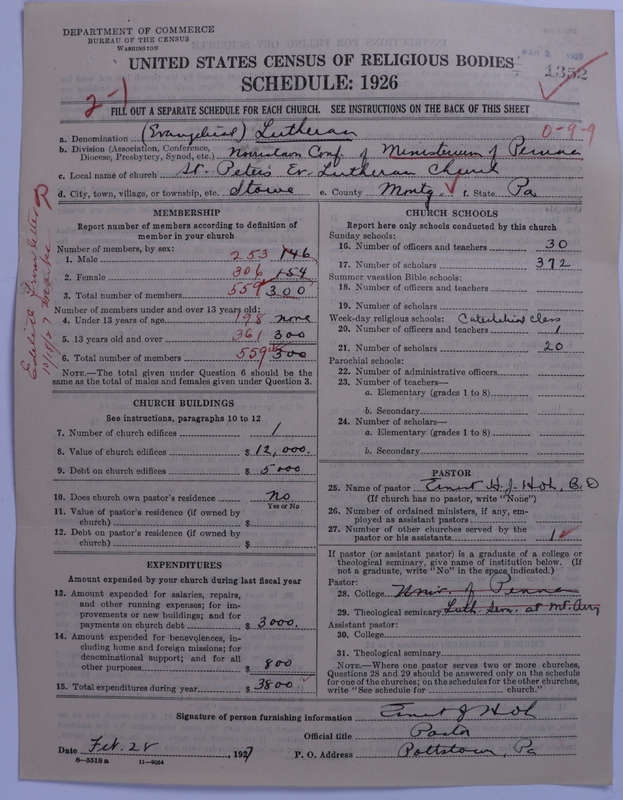 DEPARTMENT OF COMMERCE
BUREAU OF THE CENSUS
WASHINGTON
MAR 2
1352
UNITED STATES CENSUS OF RELIGIOUS BODIES
SCHEDULE: 1926
2-1
FILL OUT A SEPARATE SCHEDULE FOR EACH CHURCH. SEE INSTRUCTIONS ON THE BACK OF THIS SHEET
a. Denomination (Evangelical) Lutheran 0-9-9
b. Division (Association, Conference, Diocese, Presbytery, Synod, etc.) Norristown Conf. of Ministerium of Penna
c. Local name of church St. Peter's Ev. Lutheran Church
d. City, town, village, or township, etc. Stowe e. County Montg. f. State Pa
Edited from letter
MEMBERSHIP
Report number of members according to definition of member in your church
Number of members, by sex:
1. Male 253 146
2. Female 306 154
3. Total number of members 559 300
Number of members under and over 13 years old:
4. Under 13 years of age 198 none
5. 13 years old and over 361 300
6. Total number of members 559 300
NOTE.—The total given under Question 6 should be the same as the total of males and females given under Question 3.
CHURCH BUILDINGS
See instructions, paragraphs 10 to 12
7. Number of church edifices 1
8. Value of church edifices $ 12,000.
9. Debt on church edifices $ 5000
10. Does church own pastor's residence No
Yes or No
11. Value of pastor's residence (if owned by church) $
12. Debt on pastor's residence (if owned by church) $
EXPENDITURES
Amount expended by your church during last fiscal year
13. Amount expended for salaries, repairs, and other running expenses; for improvements or new buildings; and for payments on church debt $ 3000.
14. Amount expended for benevolences, including home and foreign missions; for denominational support; and for all other purposes $ 800
15. Total expenditures during year $ 3800
CHURCH SCHOOLS
Report here only schools conducted by this church
Sunday schools:
16. Number of officers and teachers 30
17. Number of scholars 372
Summer vacation Bible schools:
18. Number of officers and teachers
19. Number of scholars
Week-day religious schools: Catechetical Class
20. Number of officers and teachers 1
21. Number of scholars 20
Parochial schools:
22. Number of administrative officers
23. Number of teachers—
a. Elementary (grades 1 to 8)
b. Secondary
24. Number of scholars—
a. Elementary (grades 1 to 8)
b. Secondary
PASTOR
25. Name of pastor Ernest H. J. Hoh, B.D
(If church has no pastor, write "None")
26. Number of ordained ministers, if any, employed as assistant pastors
27. Number of other churches served by the pastor or his assistants 1
If pastor (or assistant pastor) is a graduate of a college or theological seminary, give name of institution below. (If not a graduate, write "No" in the space indicated.)
Pastor:
28. College Univ. of Penna
29. Theological seminary Luth. Sem. at Mt. Airy
Assistant pastor:
30. College
31. Theological seminary
NOTE.—Where one pastor serves two or more churches, Questions 28 and 29 should be answered only on the schedule for one of the churches; on the schedules for the other churches, write "See schedule for church."
Signature of person furnishing information Ernest J Hoh
Official title Pastor
Date Feb. 28 1927 P. O. Address Pottstown, Pa
8—5518 a 11—9054